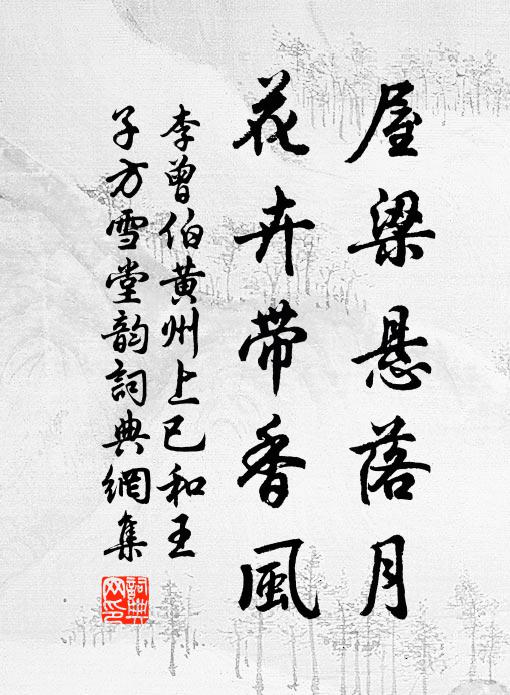 屋梁悬落月
花卉带香風
李曾伯黄州上已和王
子方雪堂韵詞典網集